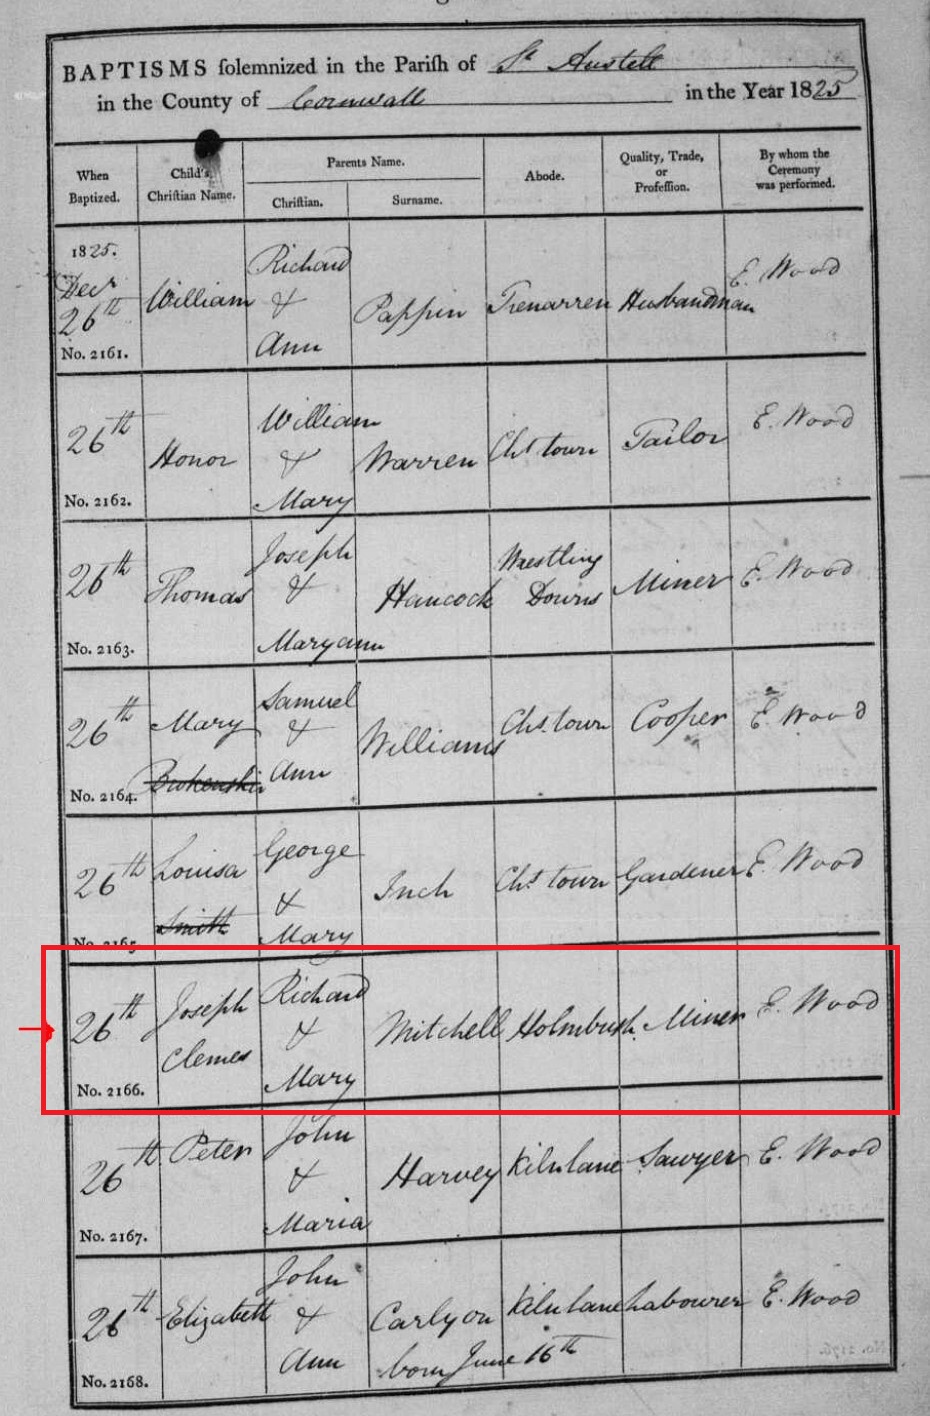 BAPTISMS solemnized in the Parish of St Austell
in the County of Cornwall in the Year 1825
When Baptized.
Child's Christian Name.
Parents Name.
Christian.
Surname.
Abode.
Quality, Trade, or Profession.
By whom the Ceremony was performed.
1825.
Decr 26th
No. 2161.
William
Richard & Ann
Pappin
Trenarren
Husbandman
E. Wood
26th
No. 2162.
Honor
William & Mary
Warren
Chs town
Tailor
E. Wood
26th
No. 2163.
Thomas
Joseph & Maryann
Hancock
Wrestling Downs
Miner
E. Wood
26th
No. 2164.
Mary
Samuel & Ann
Williams
Chs. town
Cooper
E. Wood
26th
No. 2165.
Louisa Smith
George & Mary
Inch
Chs town
Gardener
E. Wood
26th
No. 2166.
Joseph Clemes
Richard & Mary
Mitchell
Holmbush
Miner
E. Wood
26th
No. 2167.
Peter
John & Maria
Harvey
Kilnlane
Sawyer
E. Wood
26th
No. 2168.
Elizabeth
John & Ann
Carlyon
born June 16th
Kilnlane
Labourer
E. Wood